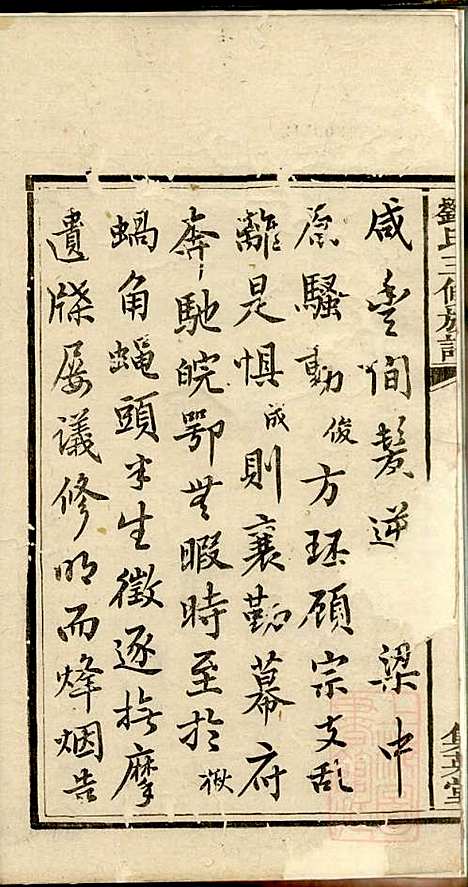 咸豐間髮逆 梁中
原騷動俊方珏頋宗支乱
離是惧成則襄勤幕府
奔馳皖鄂無暇時至於獄
蝸角蠅頭半生徵逐撫摩
遺牒屡議修明而烽烟告
劉氏三修族譜
集英堂